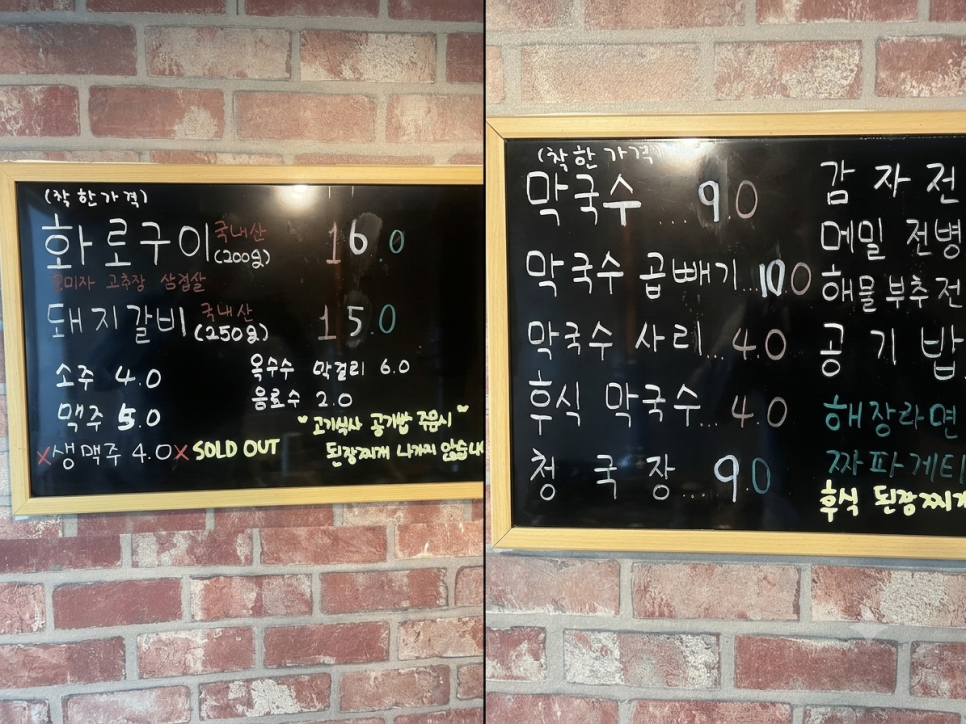 (착한가격)
화로구이 국내산 (200g) 16.0
오미자 고추장 삼겹살
돼지갈비 국내산 (250g) 15.0
소주 4.0
맥주 5.0
x생맥주 4.0x SOLD OUT
옥수수 막걸리 6.0
음료수 2.0
"고기식사 공기밥 주문시"
된장찌개 나가지 않습니
(착한가격)
막국수 .... 9.0
막국수 곱빼기... 10.0
막국수 사리... 4.0
후식 막국수... 4.0
청국장.... 9.0
감자전
메밀 전병
해물부추전
공기밥
해장라면
짜파게티
후식 된장찌개